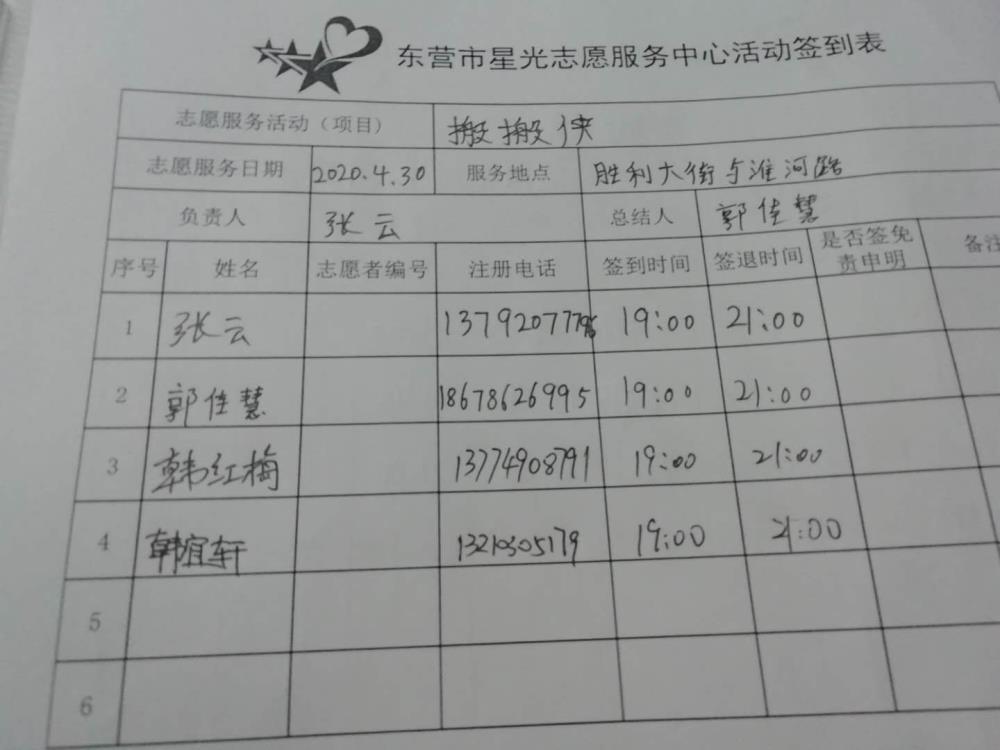 东营市星光志愿服务中心活动签到表
志愿服务活动（项目） 搬搬侠
志愿服务日期 2020.4.30 服务地点 胜利大街与淮河路
负责人 张云 总结人 郭佳慧
序号 姓名 志愿者编号 注册电话 签到时间 签退时间 是否签免责申明 备注
1 张云 19:00 21:00
2 郭佳慧 18678626995 19:00 21:00
3 韩红梅 13774908791 19:00 21:00
4 韩宜轩 13210305179 19:00 21:00
5
6